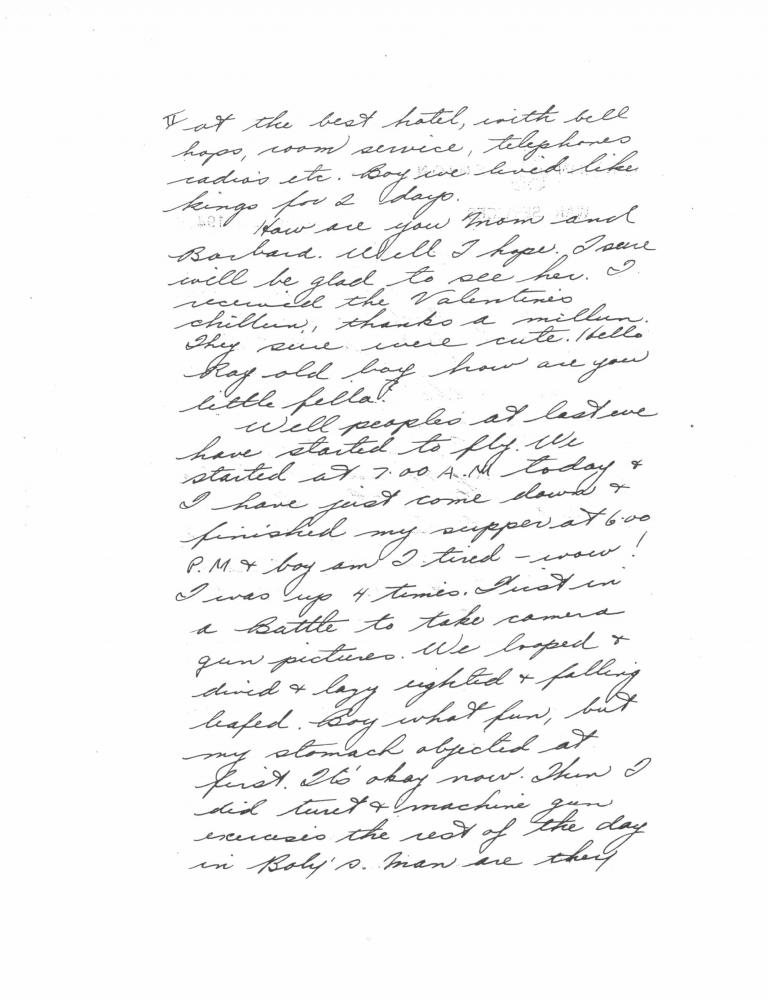 II at the best hotel, with bell
hops, room service, telephones
radios etc. Boy we lived like
kings for 2 days.
How are you Mom and
Barbara. Well I hope. I sure
will be glad to see her. I
received the Valentines
chillun, thanks a millun.
They sure were cute. Hello
Ray old boy how are you
little fella?
Well peoples at last we
have started to fly. We
started at 7:00 A.M today &
I have just come down &
finished my supper at 6:00
P.M & boy am I tired - wow!
I was up 4 times. First in
a Battle to take camera
gun pictures. We looped &
divid & lazy eighted & falling
leafed. Boy what fun, but
my stomach objected at
first. It's okay now. Then I
did turet & machine gun
exercises the rest of the day
in Boly's. Man are they